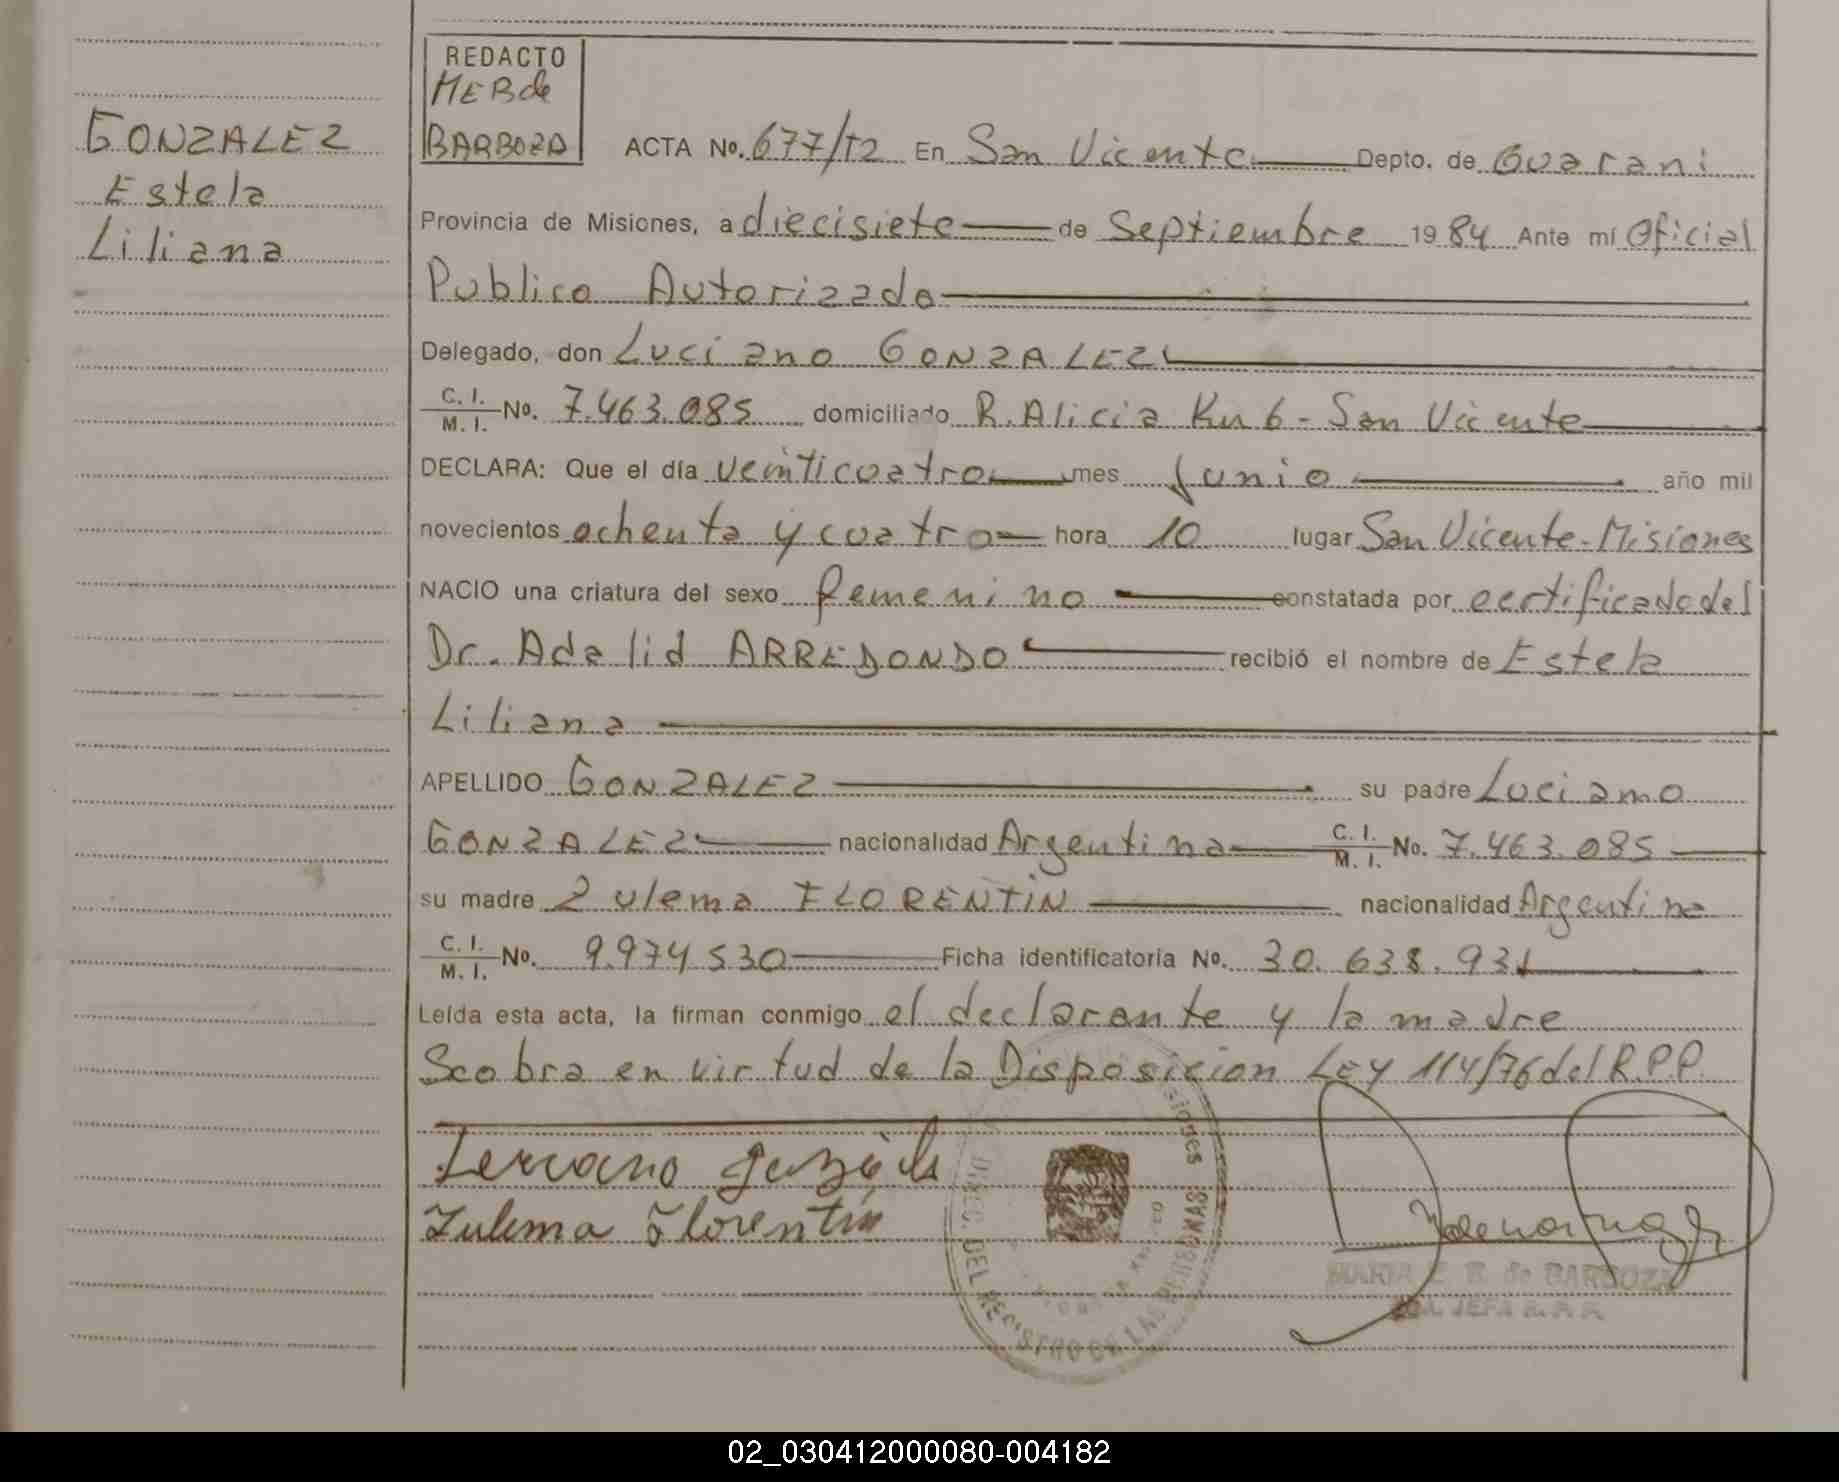 REDACTO
MEB de
BARBOZA
GONZALEZ
Estela
Liliana
ACTA No. 677/T2 En San Vicente Depto. de Guarani
Provincia de Misiones, a diecisiete de Septiembre 1984 Ante mí Oficial
Publico Autorizado
Delegado, don Luciano GONZALEZ
C. I.
M. I. No. 7.463.085 domiciliado R. Alicia Km 6 - San Vicente
DECLARA: Que el día veinticuatro mes Junio año mil
novecientos ochenta y cuatro hora 10 lugar San Vicente - Misiones
NACIO una criatura del sexo femenino constatada por certificado del
Dr. Adalid ARREDONDO recibió el nombre de Estela
Liliana
APELLIDO GONZALEZ su padre Luciano
GONZALEZ nacionalidad Argentina C. I. M. I. No. 7.463.085
su madre Zulema FLORENTIN nacionalidad Argentina
C. I.
M. I. No. 9.974.530 Ficha identificatoria No. 30.638.931
Leída esta acta, la firman conmigo el declarante y la madre
Scobra en virtud de la Disposicion LEY 114/76 del R.P.P.
Zulema Florentin
DEL REGISTRO DE LAS PERSONAS
MARIA E. B. de BARBOZA
JEFA R. P. P.
02_030412000080-004182